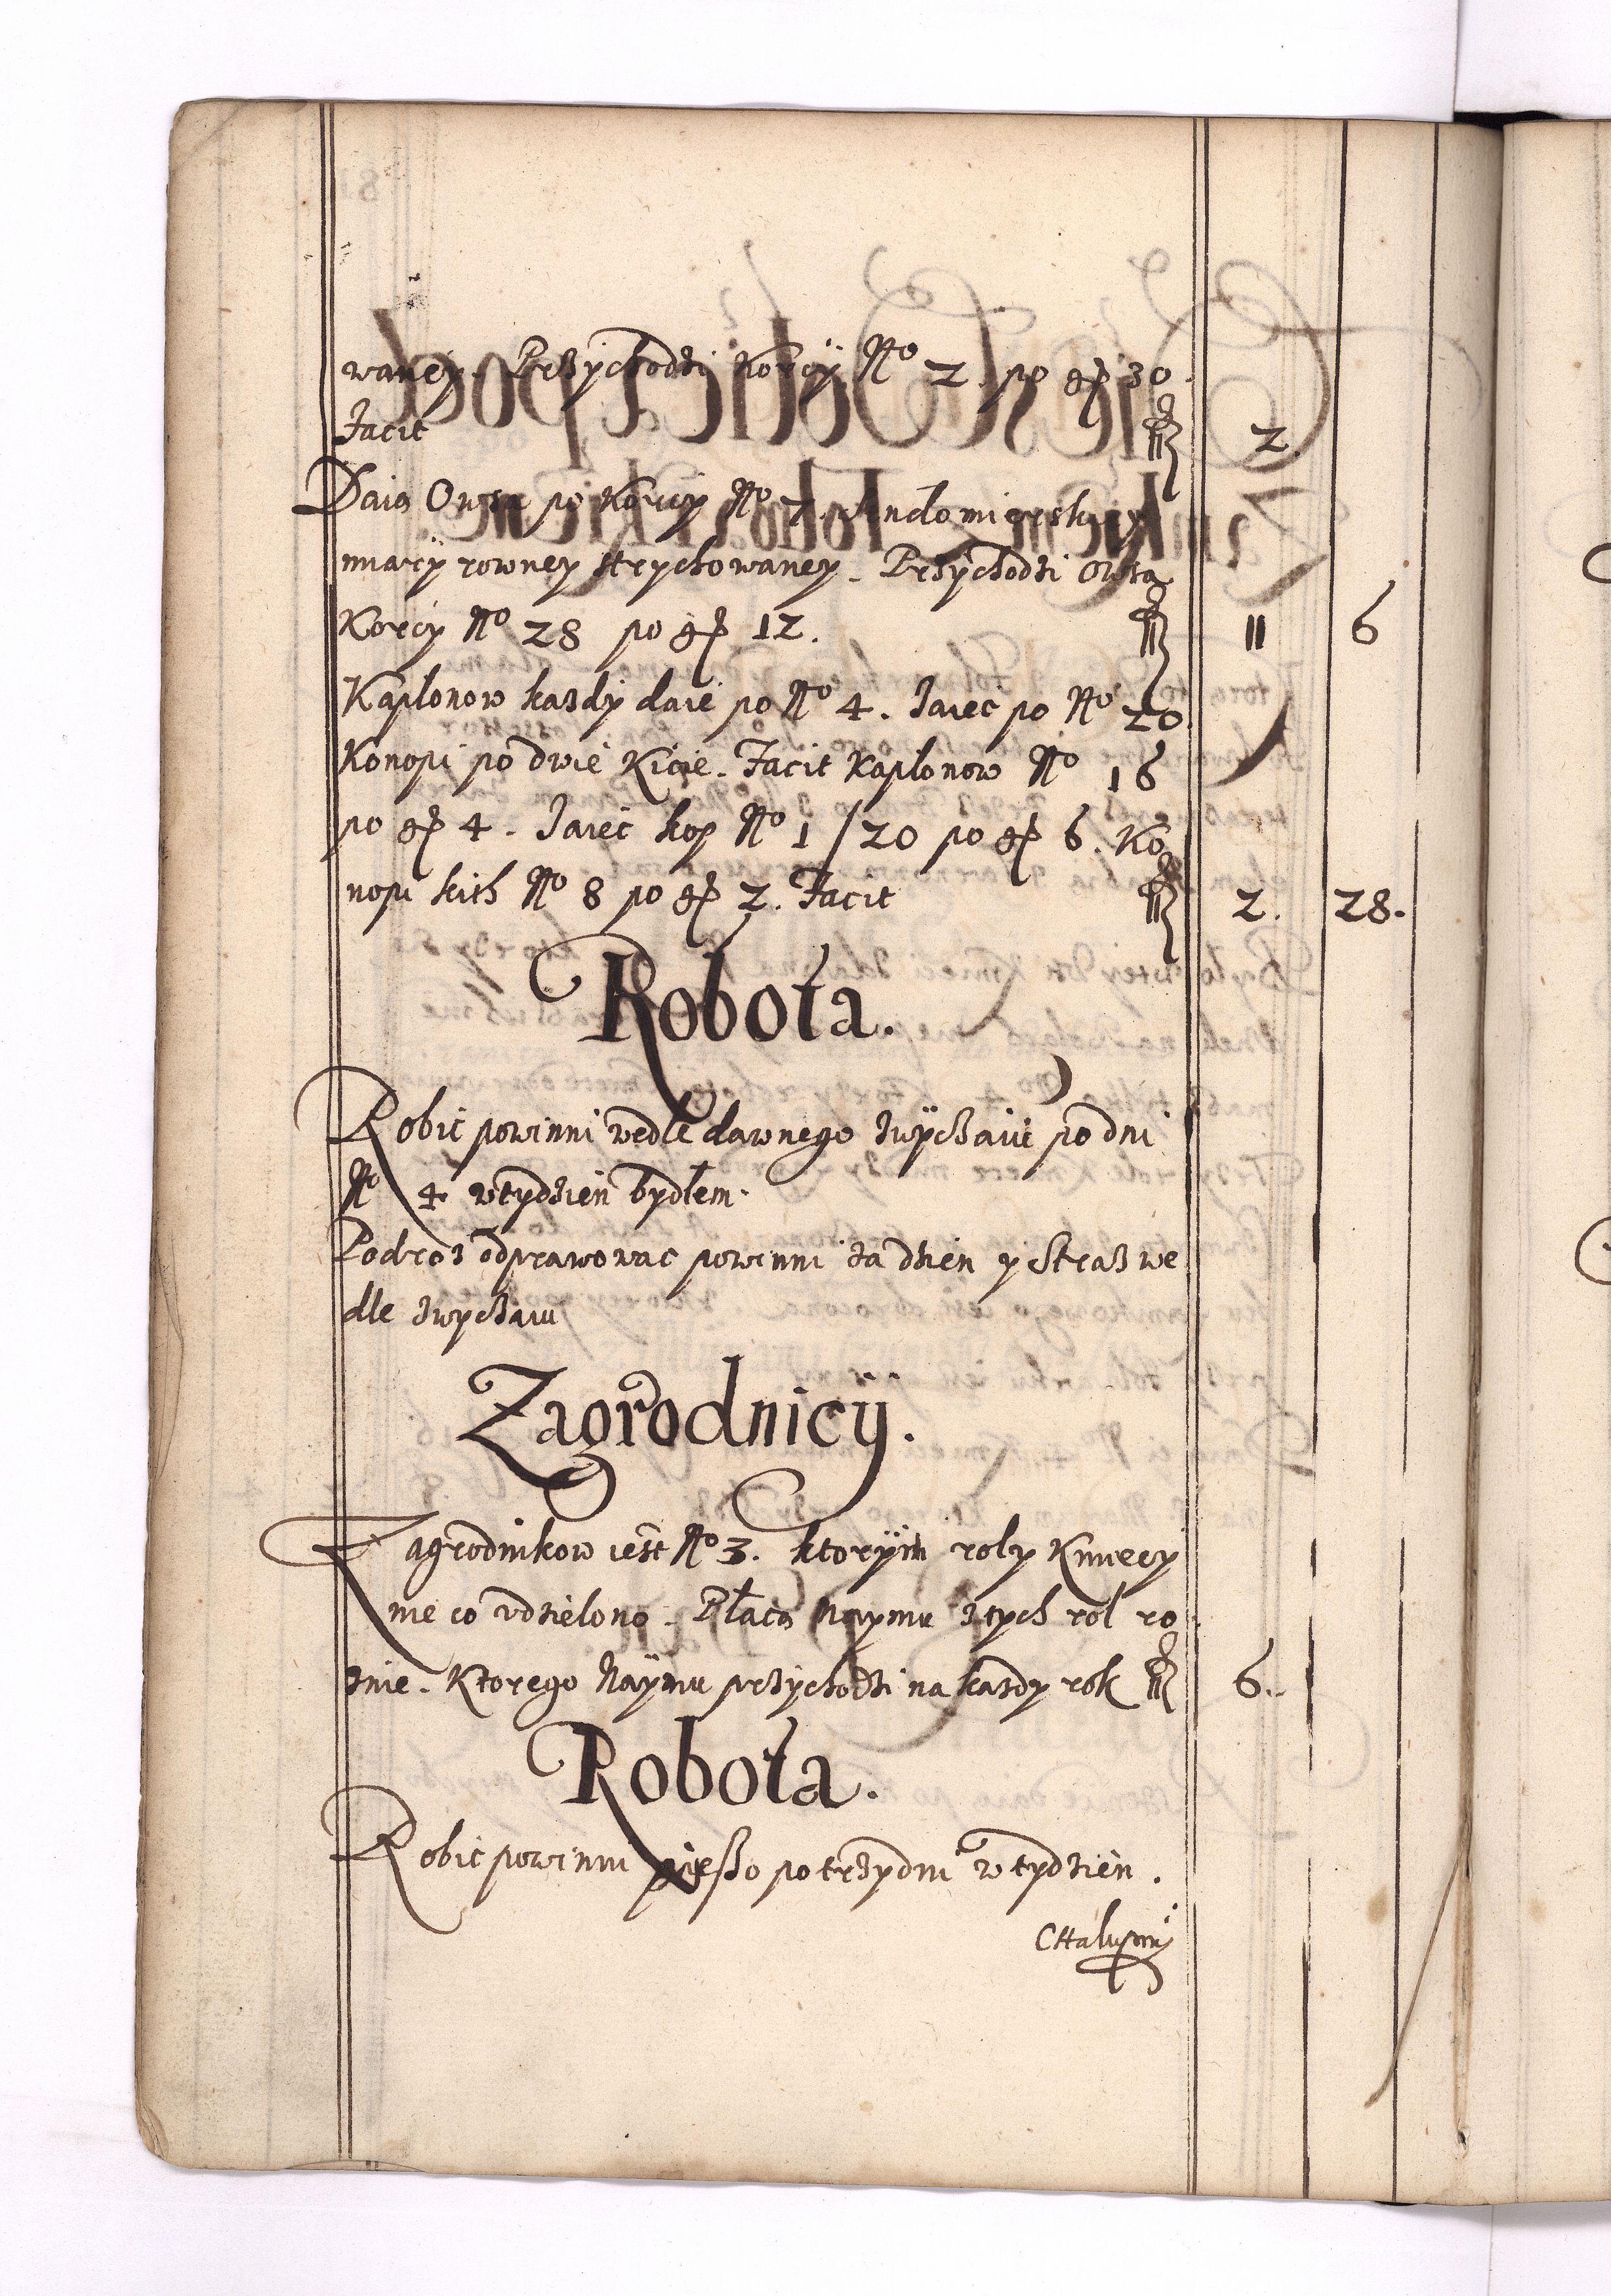 waney. Przychodzi Korcy No 2. po gr 30.
Facit fl 2.
Daią Owsa po Korcy No 7. Sendomierskiey
miary rowney strychowaney. Przychodzi Owsa
Korcy No 28 po gr 12. fl 11 6
Kapłonow kazdy daie po No 4. Iaiec po No 20
Konopi po dwie Kicie. Facit Kapłonow No 16
po gr 4. Iaiec kop No 1/20 po gr 6. Ko
nopi kith No 8 po gr 2. Facit fl 2. 28.
Robota.
Robic powinni wedle dawnego zwyczaiu po dni
No 4 w tydzien bydłem.
Podroż odprawowac powinni za dzien y Straż we
dle zwyczaiu
Zagrodnicy.
Zagrodnikow iest No 3. ktorym roly Kmiecy
nie co vdzielono. Płacą Naymu z tych rol ro
znie. Ktorego Naymu przychodzi na kazdy rok fl 6.
Robota.
Robic powinni pieszo po trzy dni w tydzien.
CHalupni